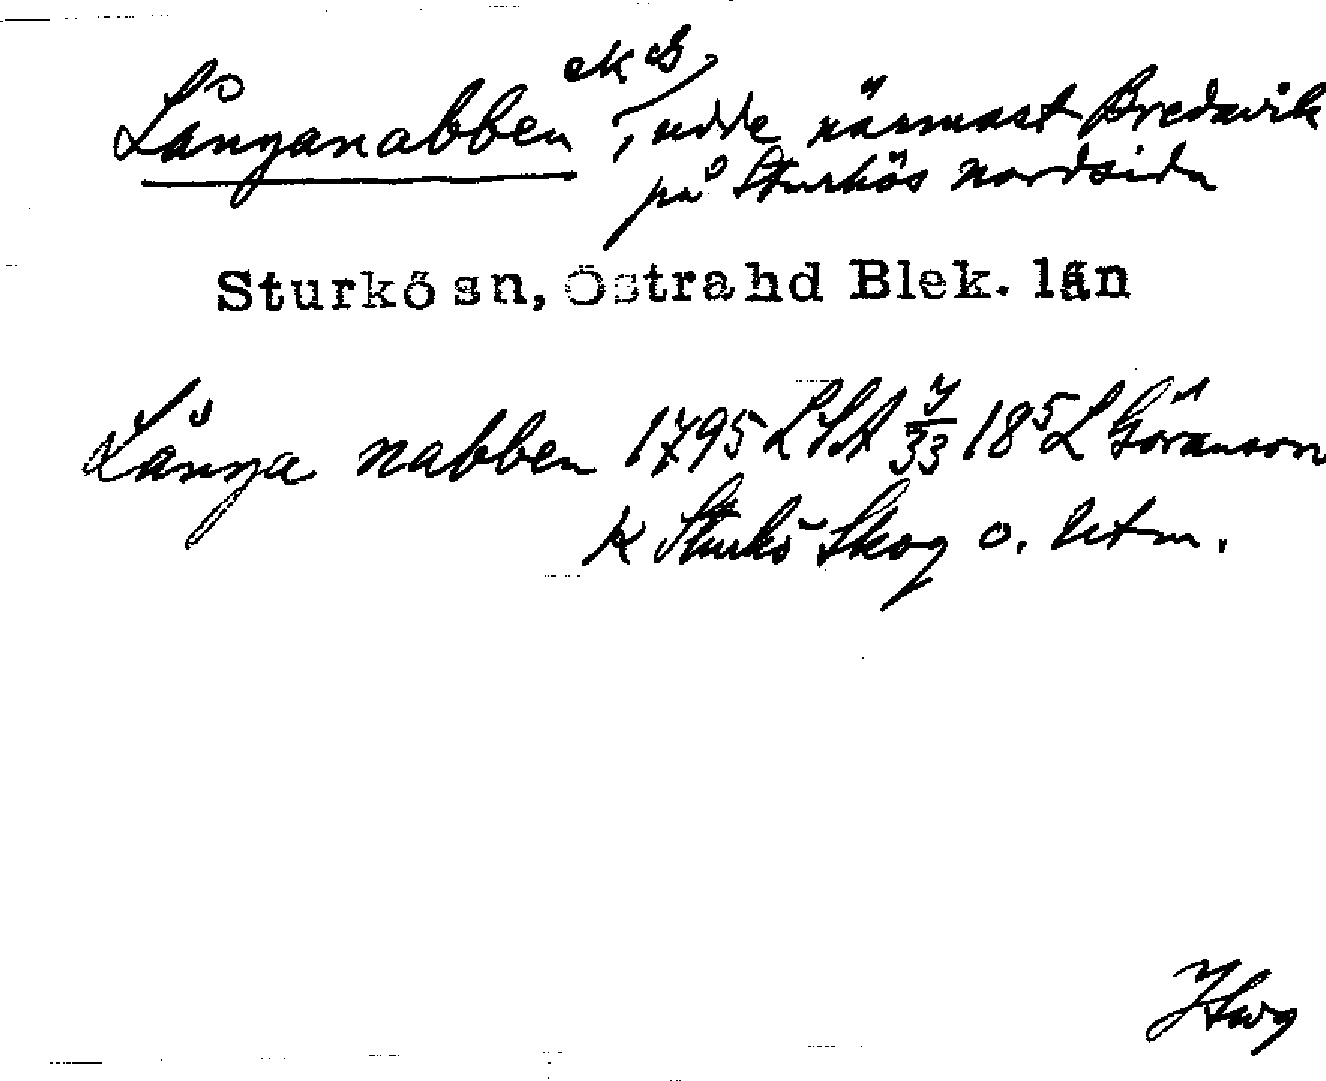 Långanabben ek B, udde närmast Bredavik
på Sturkös nordsida
Sturkö sn, Östra hd Blek. län
Långa nabben 1795 LSA 7/33 18 5 L Göranson
K Sturkö Skog o. Utm.